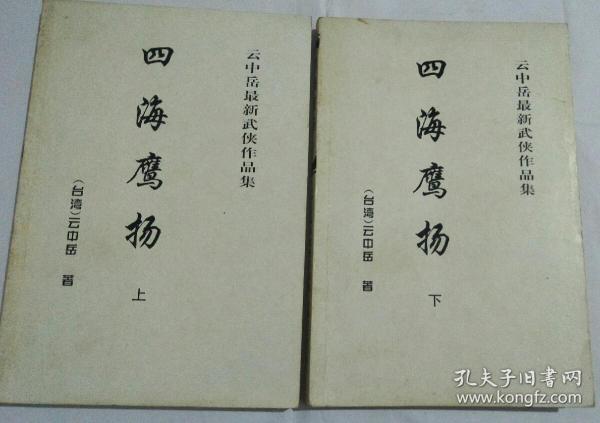 云中岳最新武侠作品集
四海鹰扬
上
(台湾)云中岳 著
云中岳最新武侠作品集
四海鹰扬
下
(台湾)云中岳 著
孔夫子旧书网
www.kongfz.com